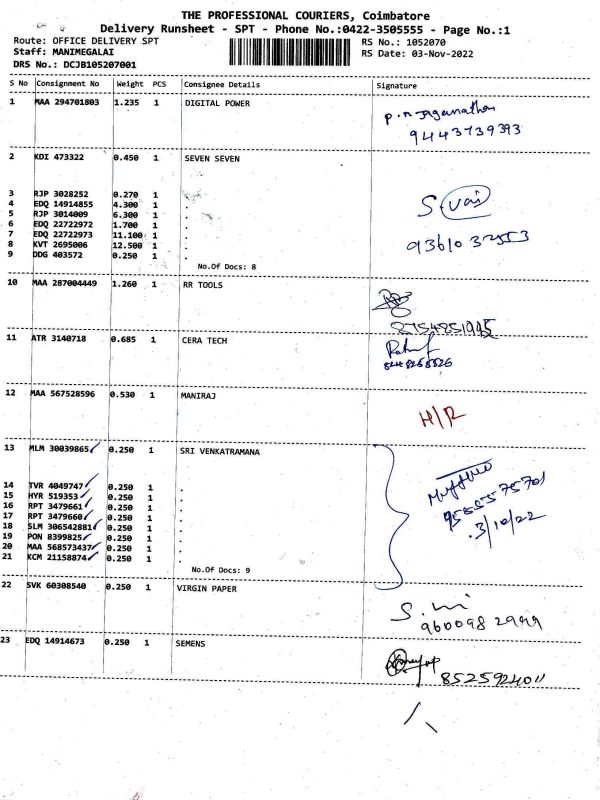 THE PROFESSIONAL COURIERS, Coimbatore
Delivery Runsheet - SPT - Phone No.:0422-3505555 - Page No.:1
Route: OFFICE DELIVERY SPT
RS No.: 1052070
Staff: MANIMEGALAI
RS Date: 03-Nov-2022
DRS No.: DCJB105207001
S No Consignment No Weight PCS Consignee Details Signature
1 MAA 294701803 1.235 1 DIGITAL POWER
9443739393
2 KDI 473322 0.450 1 SEVEN SEVEN
3 RJP 3028252 0.270 1 .
4 EDQ 14914855 4.300 1 .
5 RJP 3014009 6.300 1 .
6 EDQ 22722972 1.700 1 .
7 EDQ 22722973 11.100 1 .
8 KVT 2695006 12.500 1 .
9 DDG 403572 0.250 1 .
9361032553
No.Of Docs: 8
10 MAA 287004449 1.260 1 RR TOOLS
8754851945
11 ATR 3140718 0.685 1 CERA TECH
12 MAA 567528596 0.530 1 MANIRAJ
H/R
13 MLM 30039865 0.250 1 SRI VENKATRAMANA
14 TVR 4049747 0.250 1 .
15 HYR 519353 0.250 1 .
16 RPT 3479661 0.250 1 .
17 RPT 3479660 0.250 1 .
18 SLM 306542881 0.250 1 .
19 PON 8399825 0.250 1 .
20 MAA 568573437 0.250 1 .
21 KCM 21158874 0.250 1 .
3/10/22
No.Of Docs: 9
22 SVK 60308540 0.250 1 VIRGIN PAPER
9600982999
23 EDQ 14914673 0.250 1 SEMENS
8525924011